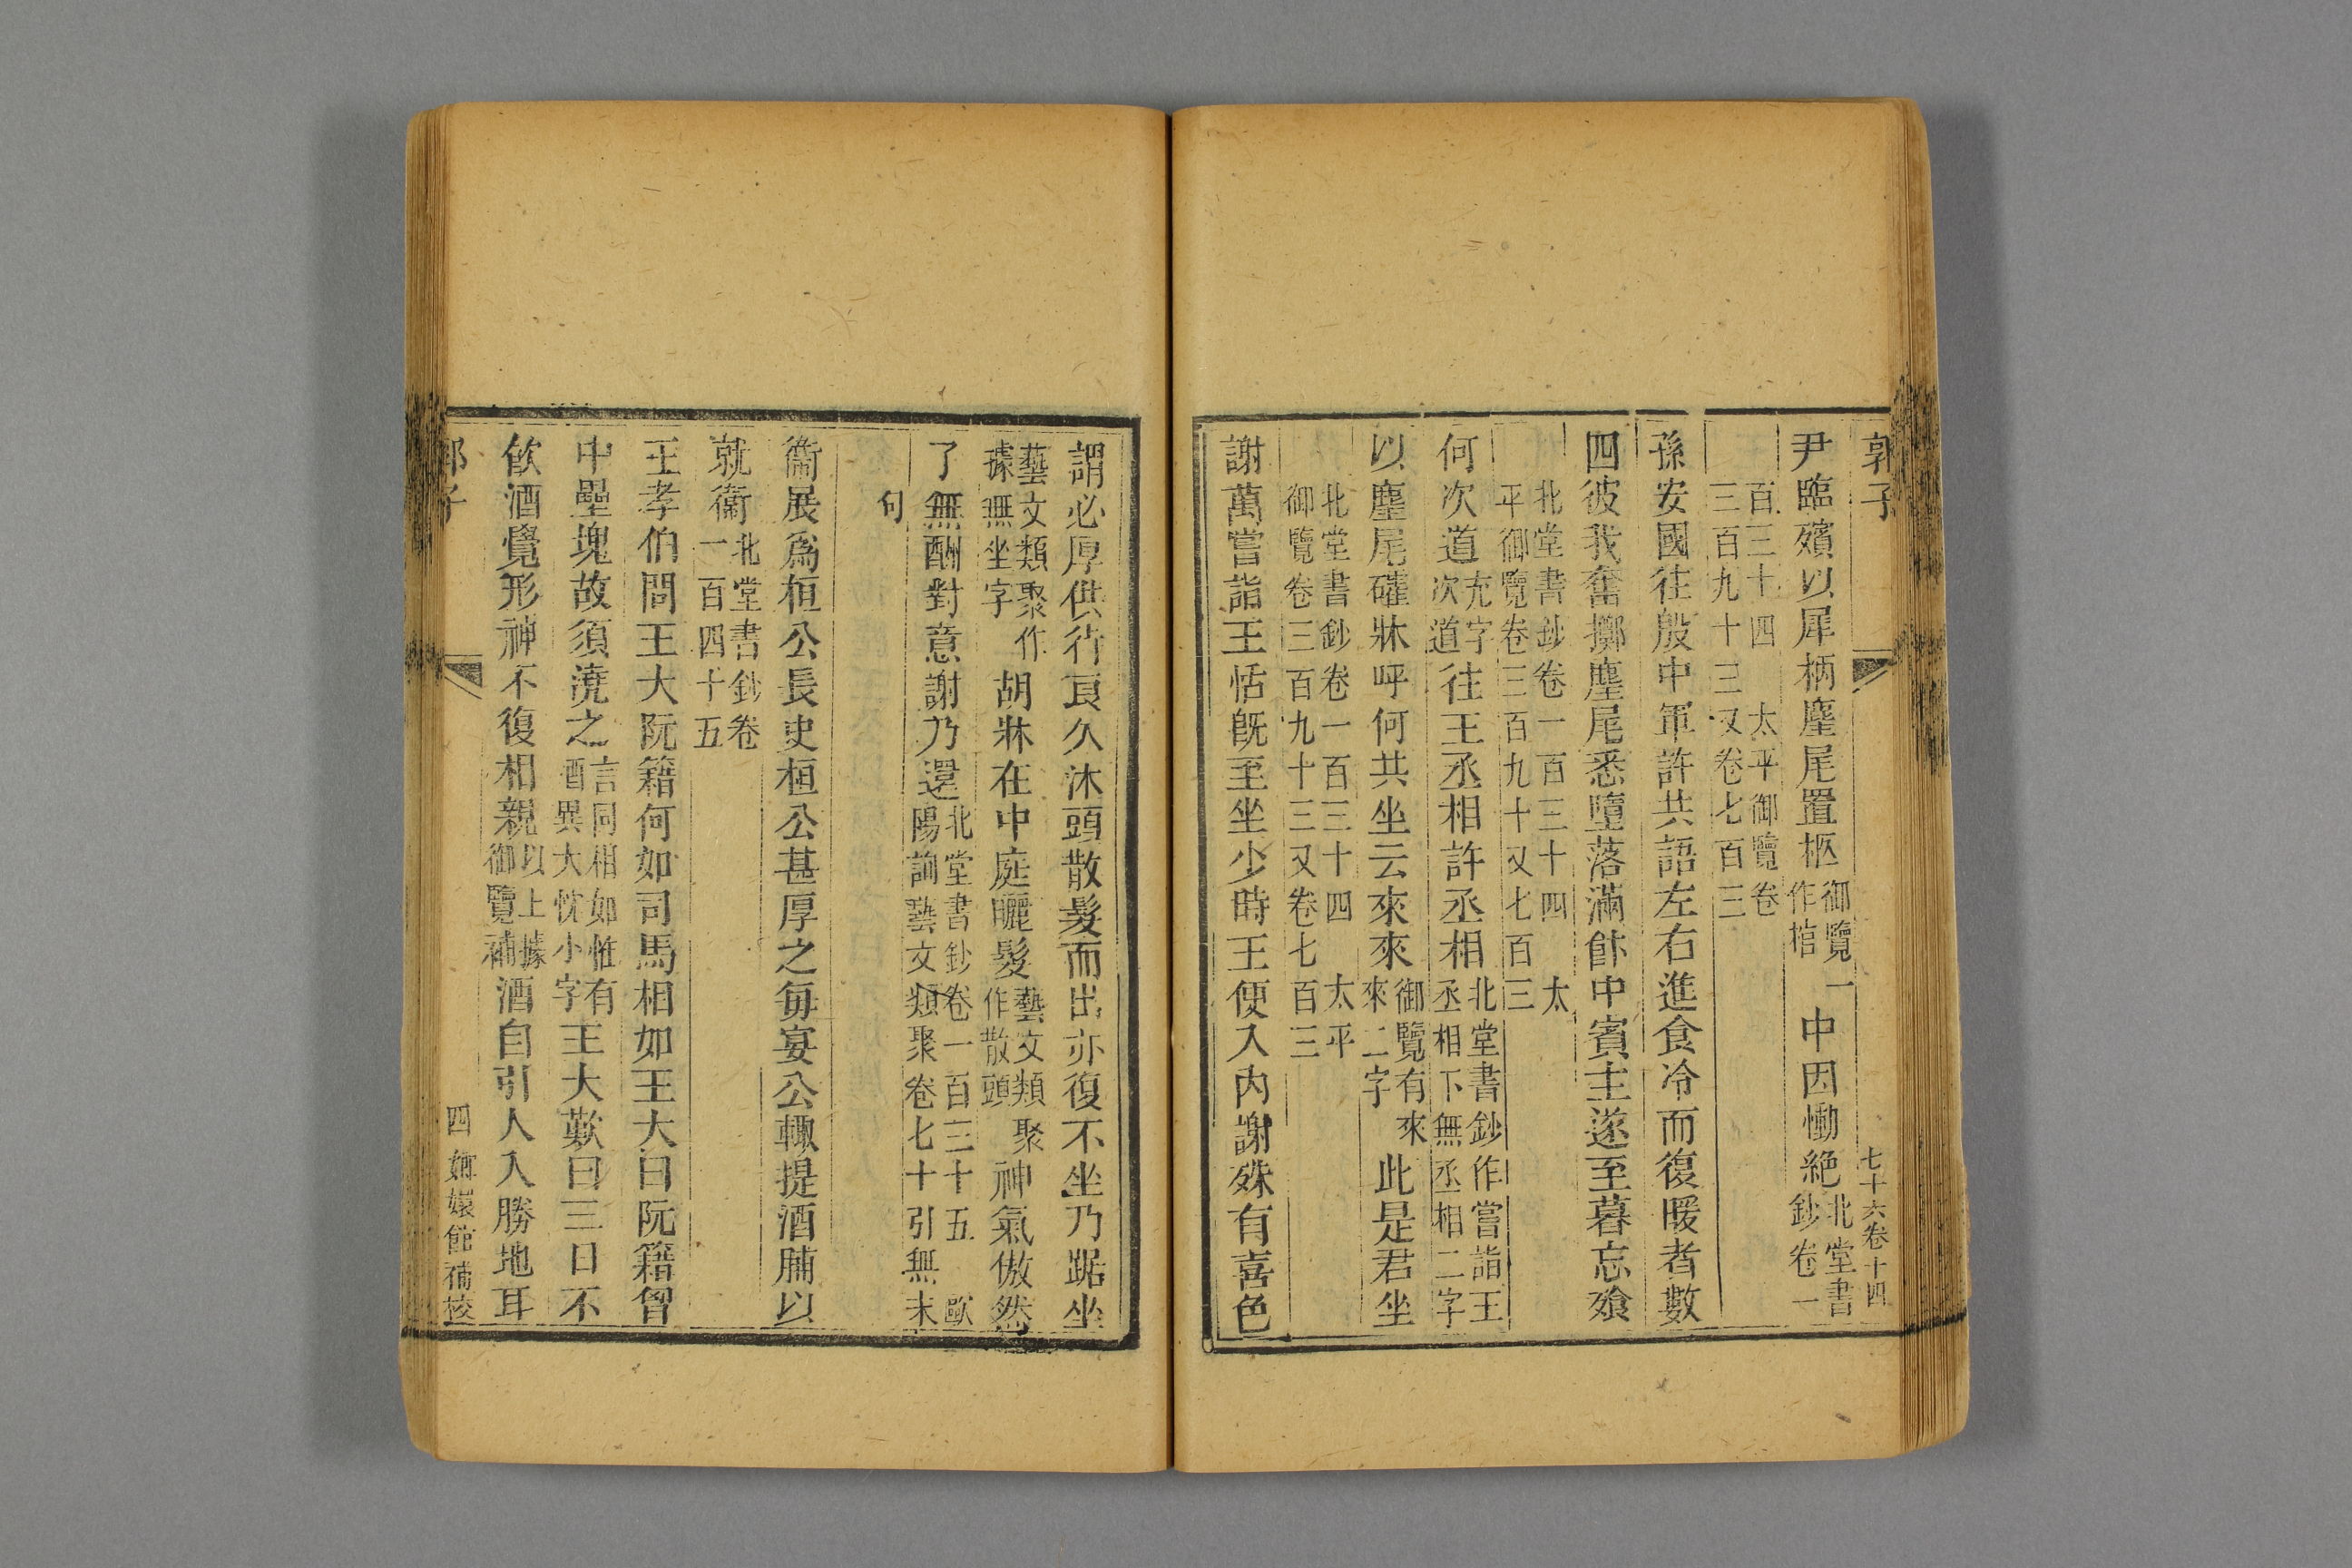 郭子 七十六卷十四
尹臨殯以犀柄麈尾置柩御覽作棺一中因慟絕北堂書鈔卷一
百三十四 太平御覽卷三百九十三又卷七百三
孫安國往殷中軍許共語左右進食冷而復暖者數
四彼我奮擲麈尾悉墮落滿飰中賓主遂至暮忘飱
北堂書鈔卷一百三十四 太平御覽卷三百九十又七百三
何次道充字次道往王丞相許丞相北堂書鈔作嘗詣王丞相下無丞相二字
以麈尾確牀呼何共坐云來來御覽有來來二字此是君坐
北堂書鈔卷一百三十四 太平御覽卷三百九十三又卷七百三
謝萬嘗詣王恬旣至坐少時王便入內謝殊有喜色
謂必厚供待良久沐頭散髮而出亦復不坐乃踞坐
藝文類聚作據無坐字胡牀在中庭曬髮藝文類聚作散頭神氣傲然
了無酬對意謝乃還北堂書鈔卷一百三十五 歐陽詢藝文類聚卷七十引無末
句
衞展爲桓公長史桓公甚厚之每宴公輒提酒脯以
就衞北堂書鈔卷一百四十五
王孝伯問王大阮籍何如司馬相如王大曰阮籍胷
中壘塊故須澆之言同相如惟有酒異大忱小字王大歎曰三日不
飲酒覺形神不復相親以上據御覽補酒自引人入勝地耳
郭子 四 嫏嬛館補校